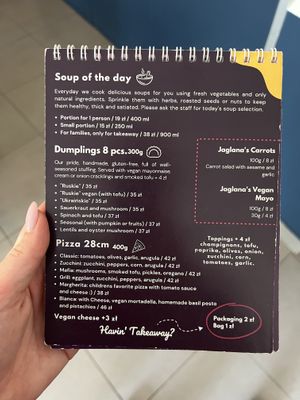 Soup of the day
Everyday we cook delicious soups for you using fresh vegetables and only
natural ingredients. Sprinkle them with herbs, roasted seeds or nuts to keep
them healthy, thick and satiated. Please ask the staff for today's soup selection.
• Portion for 1 person / 19 zł / 400 ml
• Small portion / 15 zł / 250 ml
• For families, only for takeaway / 38 zł / 900 ml
Dumplings 8 pcs.300g
Our pride, handmade, gluten-free, full of well-
seasoned stuffing. Served with vegan mayonnaise
cream or onion-cracklings and smoked tofu + 4 zł
• "Ruskie" / 35 zł
• "Ruskie" vegan (with tofu) / 35 zł
• "Ukrainskie" / 35 zł
• Sauerkraut and mushroom / 35 zł
• Spinach and tofu / 37 zł
• Seasonal (with pumpkin or fruits) / 37 zł
• Lentils and oyster mushroom / 37 zł
Jaglana's Carrots
100g / 8 zł
Carrot salad with sesame and
garlic
Jaglana's Vegan
Mayo
100g / 8 zł
30g / 4 zł
Pizza 28cm 400g
• Classic: tomatoes, olives, garlic, arugula / 42 zł
• Zucchini: zucchini, peppers, corn, arugula / 42 zł
• Mafia: mushrooms, smoked tofu, pickles, oregano / 42 zł
• Grill: eggplant, zucchini, peppers, arugula / 42 zł
• Margherita: childrens favorite pizza with tomato sauce
and cheese :) / 38 zł
• Bianca: with Cheese, vegan mortadella, homemade basil pesto
and pistachios / 46 zł
Vegan cheese +3 zł
Toppings + 4 zł
champignons, tofu,
paprika, olives, onion,
zucchini, corn,
tomatoes, garlic.
Havin' Takeaway?
Packaging 2 zł
Bag 1 zł